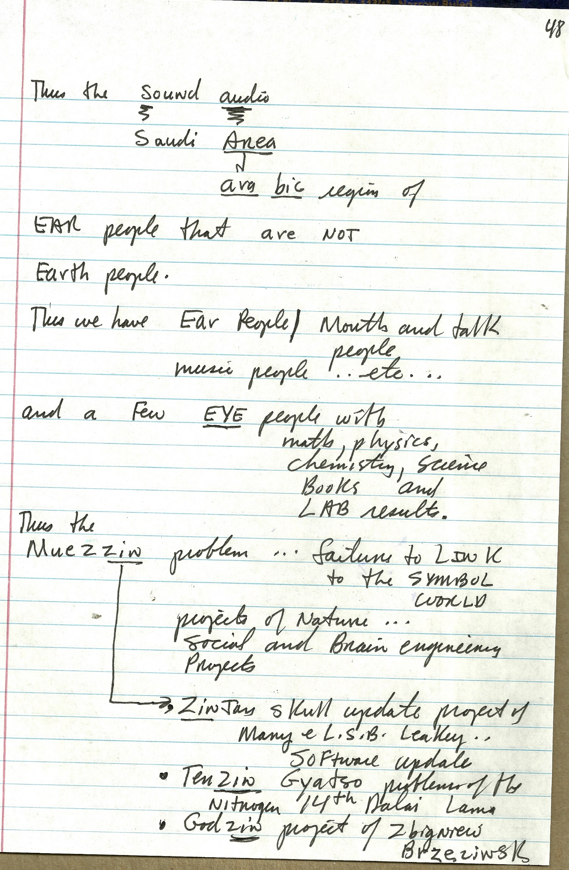 48
Thus the sound audio
Saudi Area
ara bic region of
EAR people that are NOT
Earth people.
Thus we have Ear People/ Mouth and talk
people
music people ... etc...
and a Few EYE people with
math, physics,
chemistry, Science
Books and
LAB results.
Thus the
Muezzin problem ... failure to LINK
to the SYMBOL
WORLD
projects of Nature ...
Social and Brain engineering
Projects
Zinjan skull update project of
Mary e L.S.B. Leakey..
Software update
• Tenzin Gyatso problem of the
Nitrogen 14th Dalai Lama
• Godzin project of Zbigniew
Brzezinski